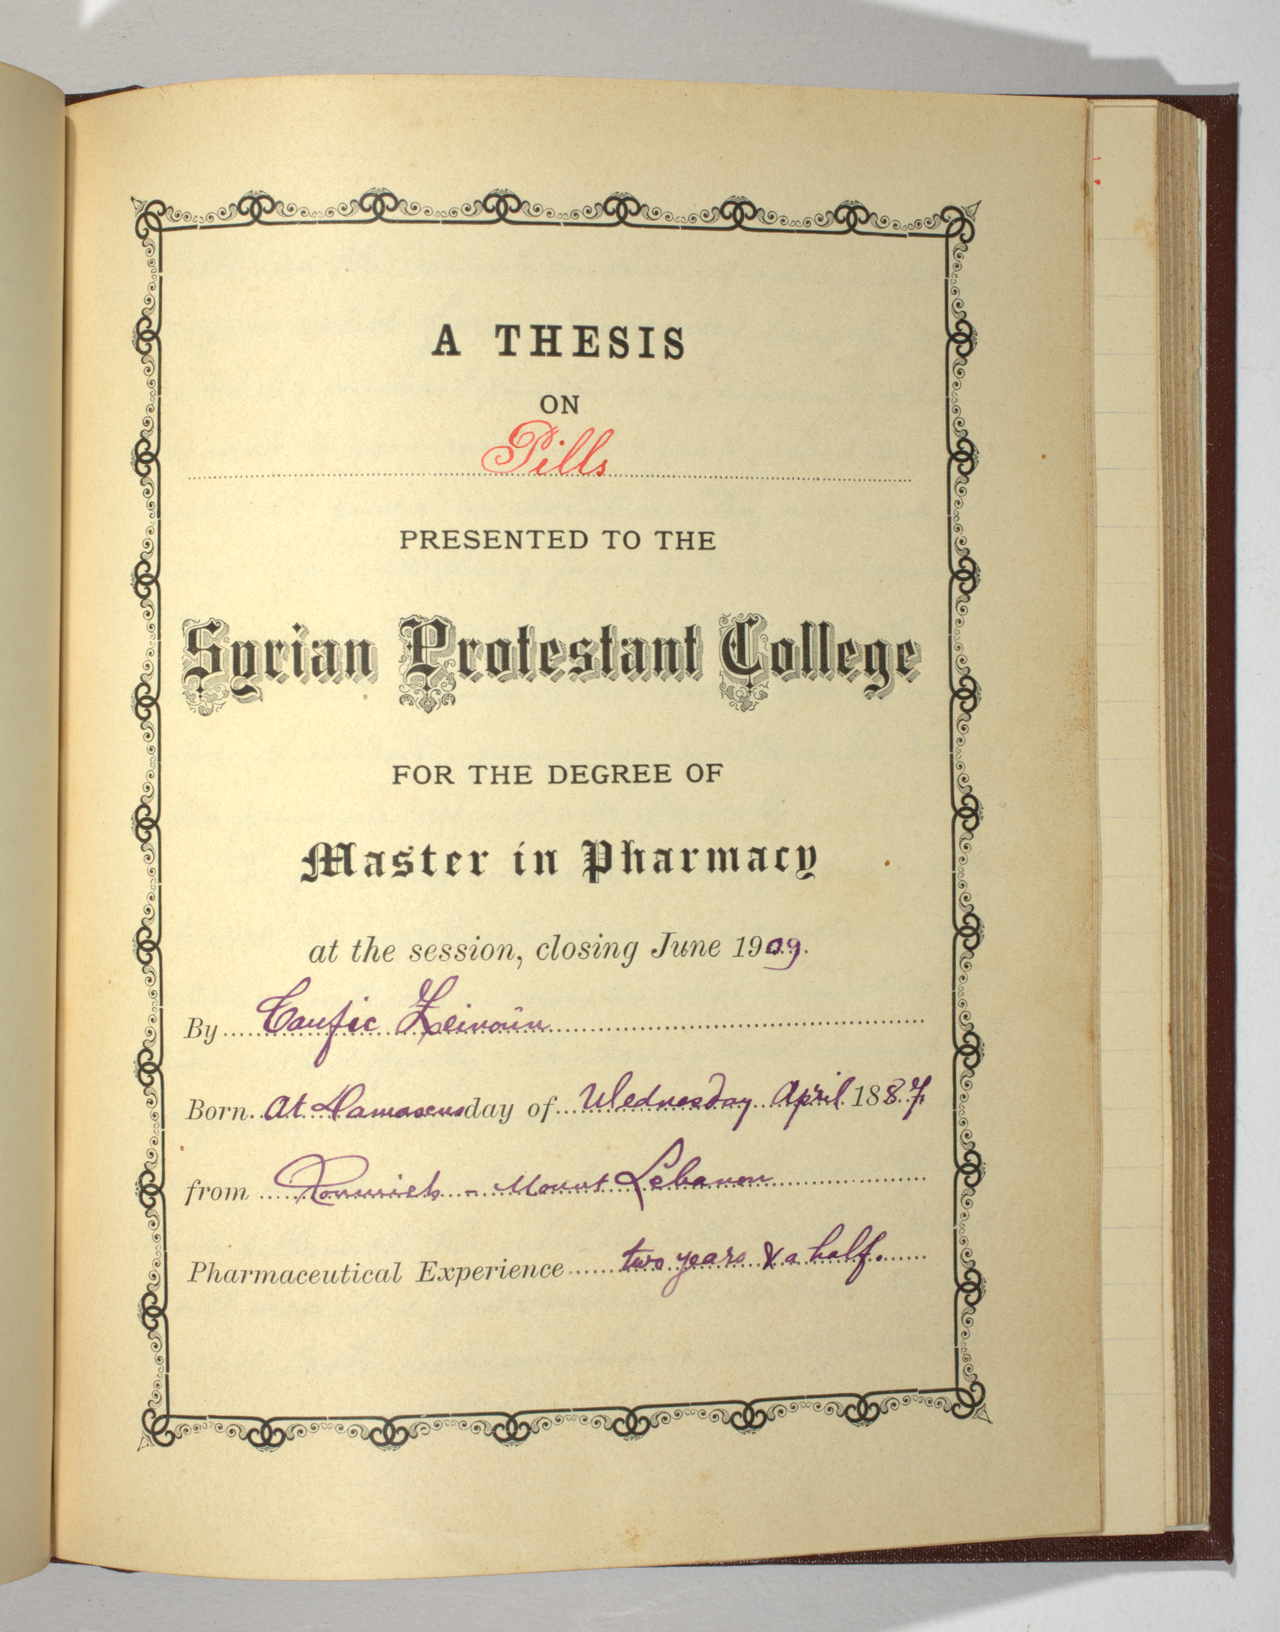 A THESIS
ON
Pills
PRESENTED TO THE
Syrian Protestant College
FOR THE DEGREE OF
Master in Pharmacy
at the session, closing June 1909.
By Taufic Zeinoün
Born At Damascus day of Wednesday April 1887
from - Mount Lebanon
Pharmaceutical Experience two years & a half.